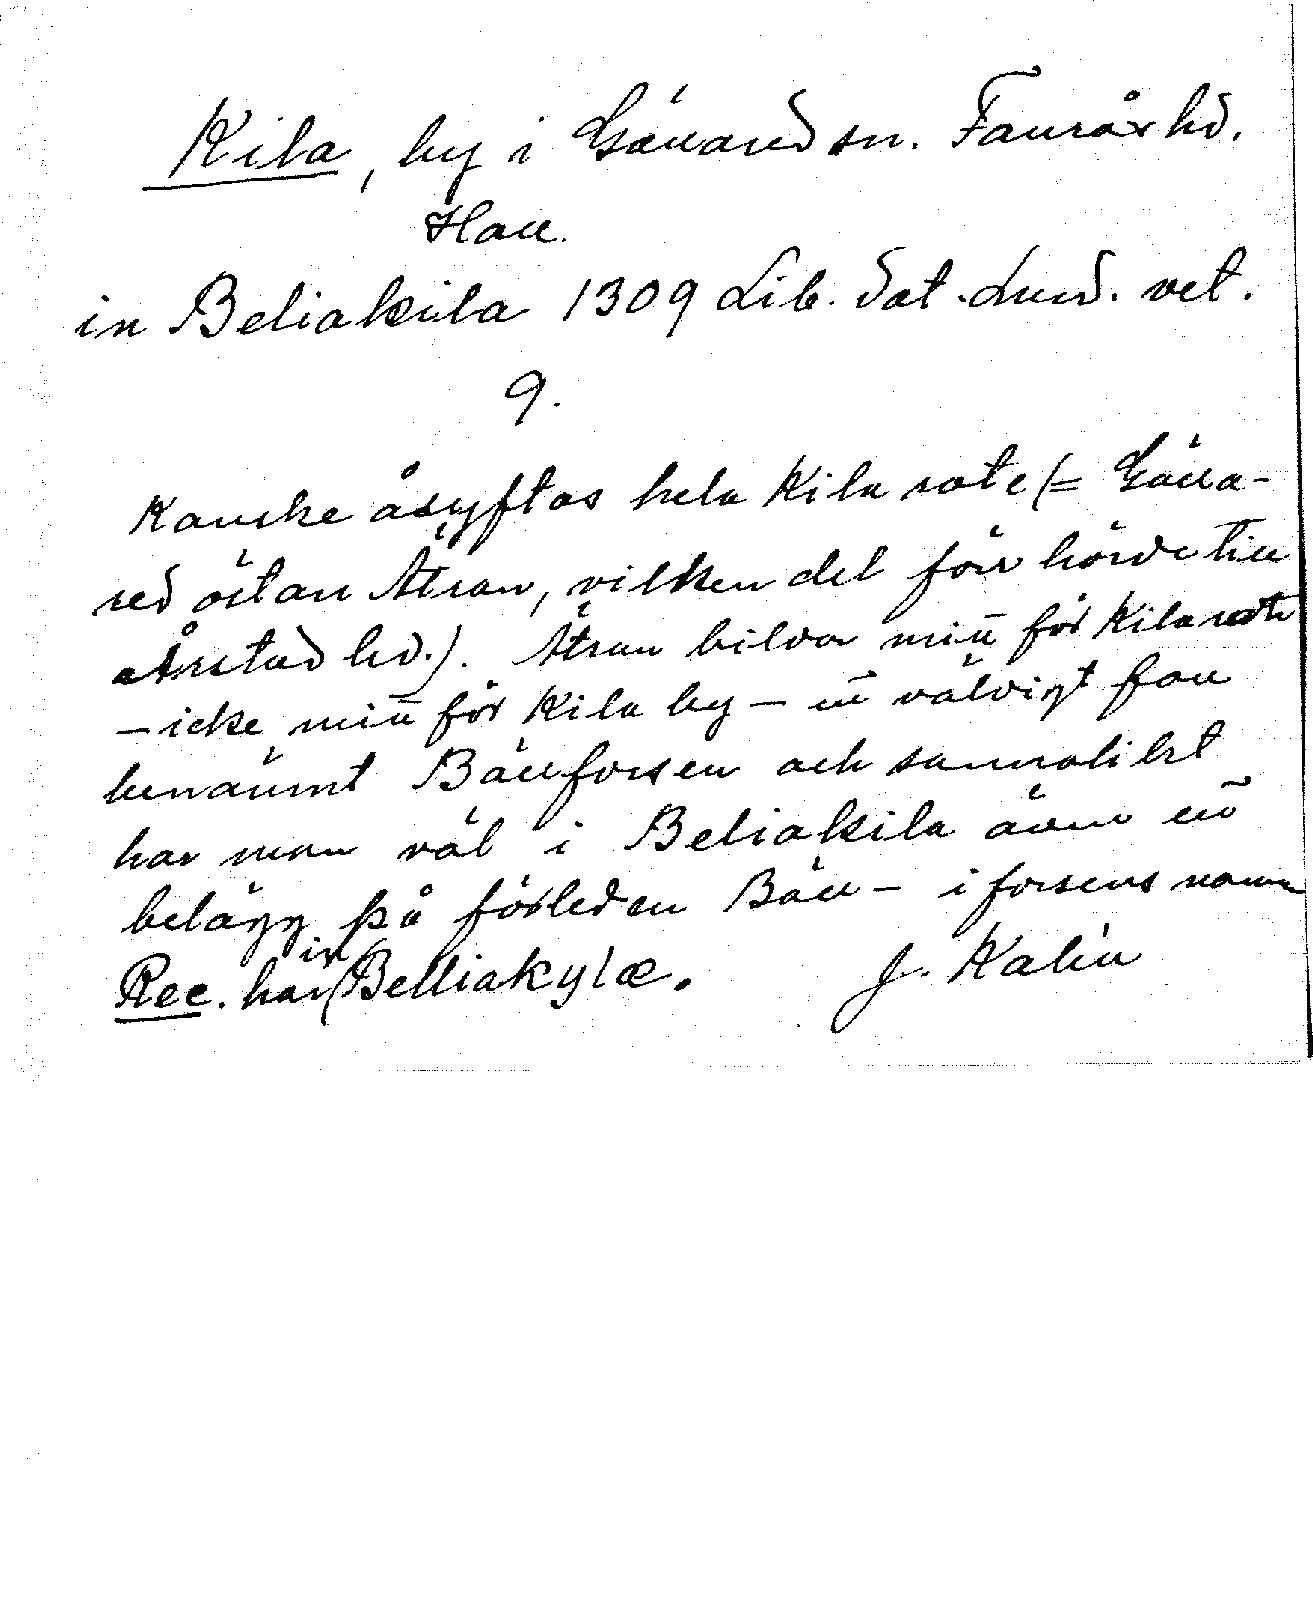 Kila, by i Gällared sn. Faurås hd.
Hall.
in Beliakila 1309 Lib. dat. Lund. vet.
9.
Kanske åsyftas hela Kila rote (= Gälla-
red östan Ätran, vilken del förr hörde till
Årstad hd.). Ätran bildar mitt för Kila rote
– icke mitt för Kila by – ett väldigt fall
benämnt Bällforsen och sannolikt
har man väl i Beliakila även ett
belägg på förleden Bäll- i forsens namn
Rec. har in Belliakylæ. J. Kalén